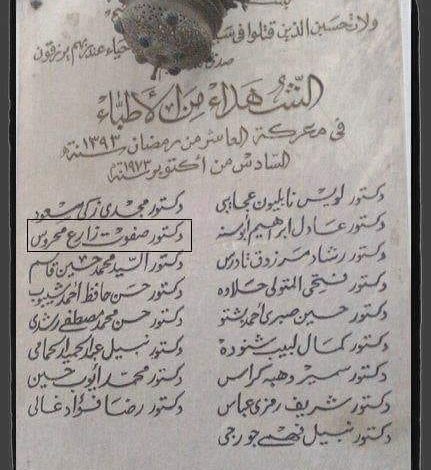 ولا تحسبن الذين قتلوا في سبيل
أحياء عند ربهم يرزقون
صدق
الشهداء من الأطباء
في معركة العاشر من رمضان سنة ١٣٩٣
السادس من أكتوبر سنة ١٩٧٣
دكتور لويس نابليون عجايبي
دكتور عادل ابراهيم
دكتور رشاد مرزوق تادرس
دكتور فتحي المتولي حلاوه
دكتور حسين صبري أحمد بشتو
دكتور كمال لبيب شنودة
دكتور سمير وهبه كراس
دكتور شريف رمزي عباس
دكتور نبيل فهمي جورجي
دكتور مجدي زكي مسعود
دكتور صفوت زارع محروس
دكتور السيد محمد حسين قاسم
دكتور حسن حافظ أحمد شبوب
دكتور حسن محمد مصطفى رشدي
دكتور نبيل عبد الحميد الحمامي
دكتور محمد أيوب حسين
دكتور رضا فؤاد غالي